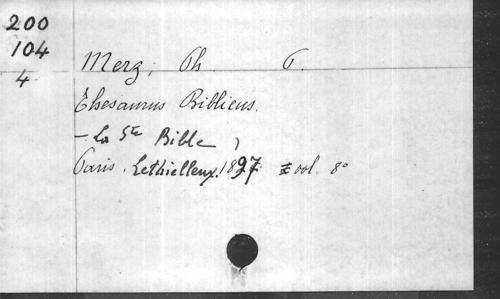 200
104
4
Merz, Ph. P.
Thesaurus Biblicus.
- La Ste Bible,
Paris. Lethielleux. 1897. vol. 8°